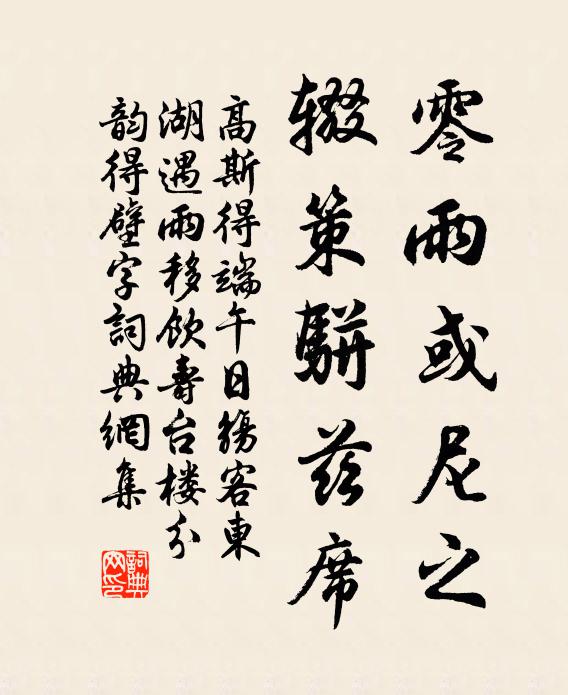 零雨或尼之
辍策駢茲席
高斯得端午日觴客東
湖遇雨移飲壽台楼分
韵得壁字詞典網集
詞典網印